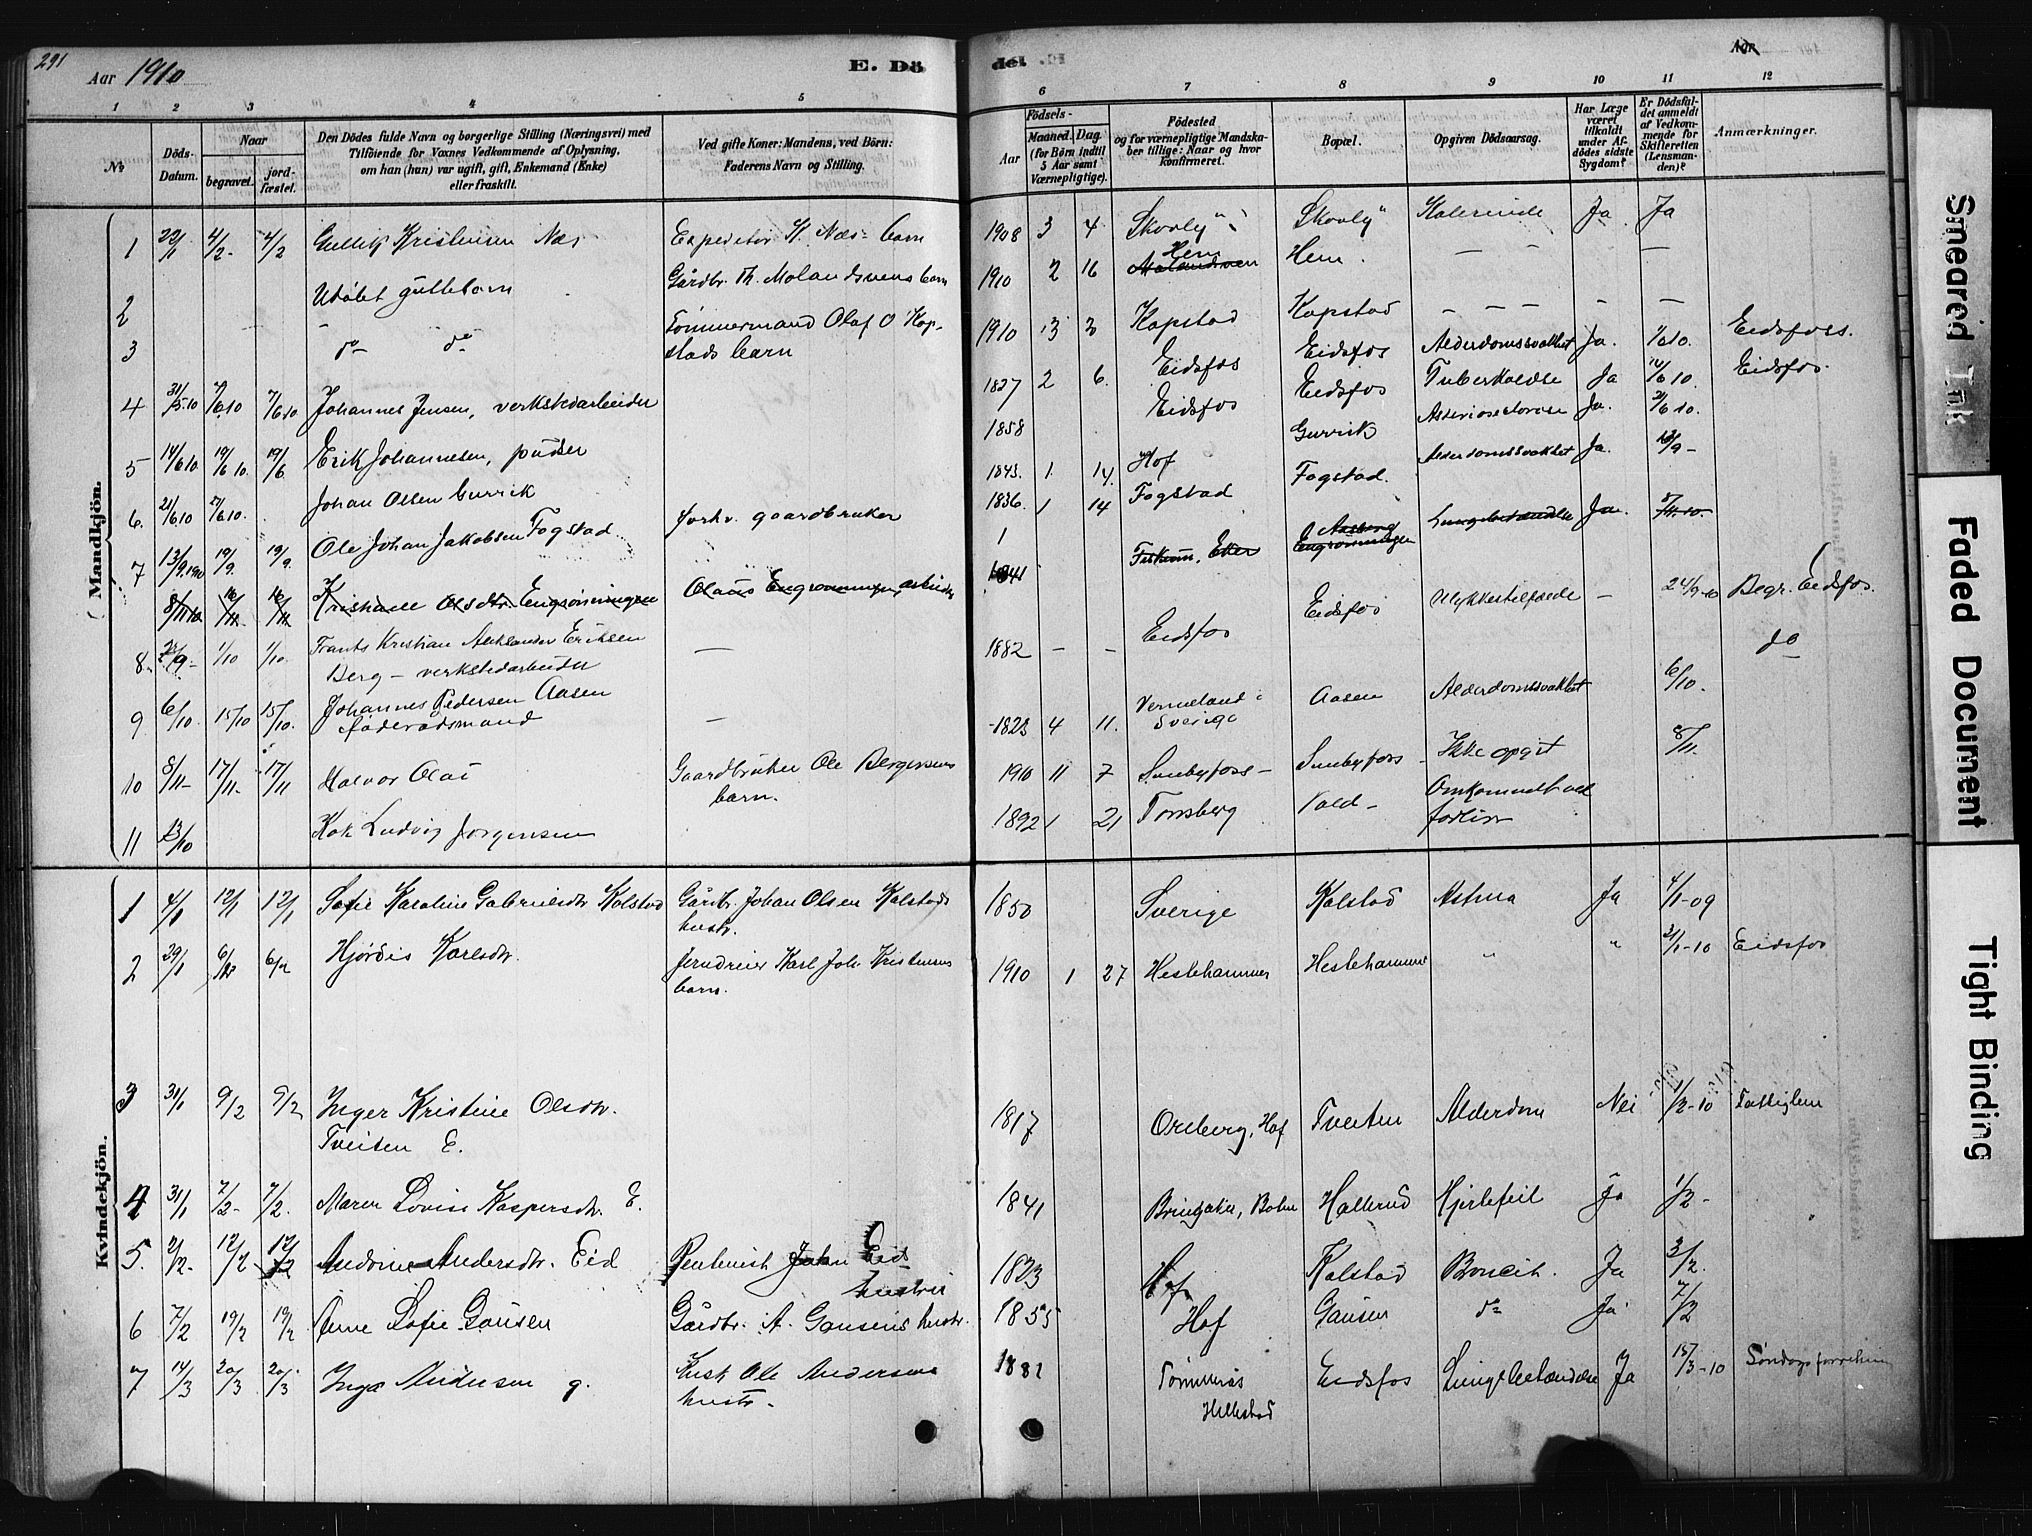 291
Aar 1910
E. Dö
del
Aar
1 2 3 4 5 6 7 8 9 10 11 12
No
Döds-Datum.
Naar
begravet.
jord-fæstet.
Den Dödes fulde Navn og borgerlige Stilling (Næringsvei) med
Tilföiende for Voxnes Vedkommende af Oplysning,
om han (hun) var ugift, gift, Enkemand (Enke)
eller fraskilt.
Ved gifte Koner: Mandens, ved Börn:
Faderens Navn og Stilling.
Födsels-
Aar
Maaned. Dag
(for Börn indtil
5 Aar samt
Værnepligtige).
Födested
og for værnepligtige Mandska-
ber tillige: Naar og hvor
konfirmeret.
Bopæl.
Opgiven Dödsaarsag.
Har Læge
været
tilkaldt
under Af-
dödes sidste
Sygdom?
Er Dödsfal-
det anmeldt
af Vedkom-
mende for
Skifteretten
(Lensman-
den)?
Anmærkninger.
Mandkjön.
1 22/1 4/2 4/2 Gullik Kristensen Næs Expeditør K. Næs' barn 1908 3 4 Skovly Skovly Ja Ja
2 Udöbt guttebarn Gårdbr. Th. Molandsvens barn 1910 2 16 Molandsven Hem Hem. — — —
3 do do Tömmermand Olaf O Kop-
stads barn 1910 3 3 Kopstad Kopstad — — —
4 31/5 10 7/6 10 7/6 10 Johannes Jensen, verkstedarbeider 1827 2 6. Eidsfos Eidsfos Alderdomssvakhet Ja. 1/6 10. Eidsfoss.
5 14/6 10 19/6 10. 19/6 Erik Johannesen, pudser 1858 Eidsfos Eidsfos Tuberkulose Ja 14/6 10. Eidsfos.
6. 21/6 10 27/6 10. Johan Olsen Gurrik 1843. 1. 14. Hof Gurrik Ja. 21/6 10.
7 13/9 1910 19/9. 19/9. Ole Johan Jakobsen Fogstad forhv. gaardbruker 1836. 1 14 Fogstad Fogstad. Alderdomssvakhet Ja. 13/9 -
8/11 10 16/11 16/11 Kristiane Olsdtr. Engrønningen Olaus Engrønningen, arbeider 1841 Fiskum, Eker Aasberg Engrønningen Lungebetændelse Ja. 9/11.10.
8. 24/9 - 1/10 1/10. Frants Kristian Aleksander Eriksen
Berg — verkstedarbeider — 1882 — — Eidsfos Eidsfos Ulykkestilfælde — 24/9-10 Begr. Eidsfos.
do
9 6/10. 15/10 15/10. Johannes Pedersen Aasen
föderådsmand — 1823 4 11. Vermeland
Sverige Aasen Alderdomssvakhet 6/10.
10 8/11 - 17/11. 17/11 Halvor Olai Gaardbruker Ole Bergersens
barn. 1910 11 7 Sundbyfoss - Sundbyfoss - Ikke opgit 8/11.
11 13/10 Kar Ludvig Jørgensen 1892 1 21 Tønsberg Vold - Omkommet ved
forlis
Kvindekjön.
1 4/1 12/1 12/1 Sofie Karoline Gabrielsdtr Kolstad Gårdbr. Johan Olsen Kolstads
hustr. 1850 Sverige Kolstad Astma Ja 4/1-09
2 29/1 6/2 6/2 Hjördis Karlsdtr. Jerndreier Karl Joh. Kristensens
barn. 1910 1 27 Hestehammer Hestehammer " " 31/1-10 Eidsfos
3 31/1 9/2 9/2 Inger Kristine Olsdtr.
Tveiten E. 1817 Oreberg, Hof Tveiten Alderdom Nei 1/2-10 Fattiglem
4 31/1 7/2- 7/2. Maren Lovise Kaspersdtr. E. 1841 Bringaker, Botne Hallerud Hjertefeil Ja 1/2-
5. 2/2- 12/2 12/2 Andrine Andersdtr. Eid Penlenist Johan Eid
hustru 1823 Hof Kolstad Boncit. Ja 3/2.
6 7/2 19/2 19/2 Anne Sofie Gausen Gårdbr. A. Gausens hustr. 1855 Hof Gausen do Ja 7/2
7 14/3 20/3 20/3 Inga Andersen g. Kusk Ole Andersens
hustr. 1882 Tømmerås
Hillestad Eidsfos Lungebetændelse Ja 15/3-10 Søndagsforretning
Smeared Ink
Faded Document
Tight Binding